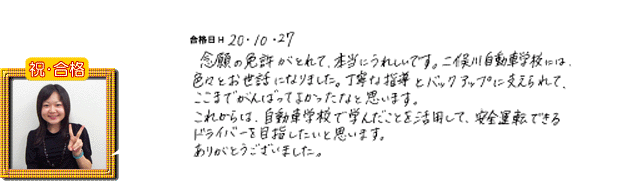 祝・合格
合格日 H 20・10・27
念願の免許がとれて、本当にうれしいです。二俣川自動車学校には、
色々とお世話になりました。丁寧な指導とバックアップに支えられて、
ここまでがんばってよかったなと思います。
これからは、自動車学校で学んだことを活用して、安全運転できる
ドライバーを目指したいと思います。
ありがとうございました。